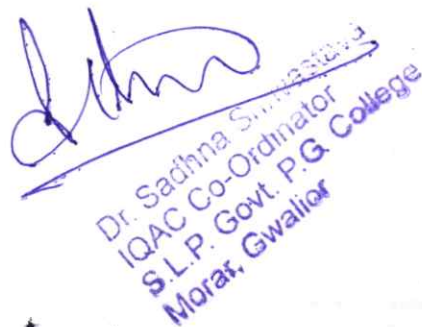 Dr. Sadhna
IQAC Co-Ordinator
S.L.P. Govt. P.G. College
Morar, Gwalior